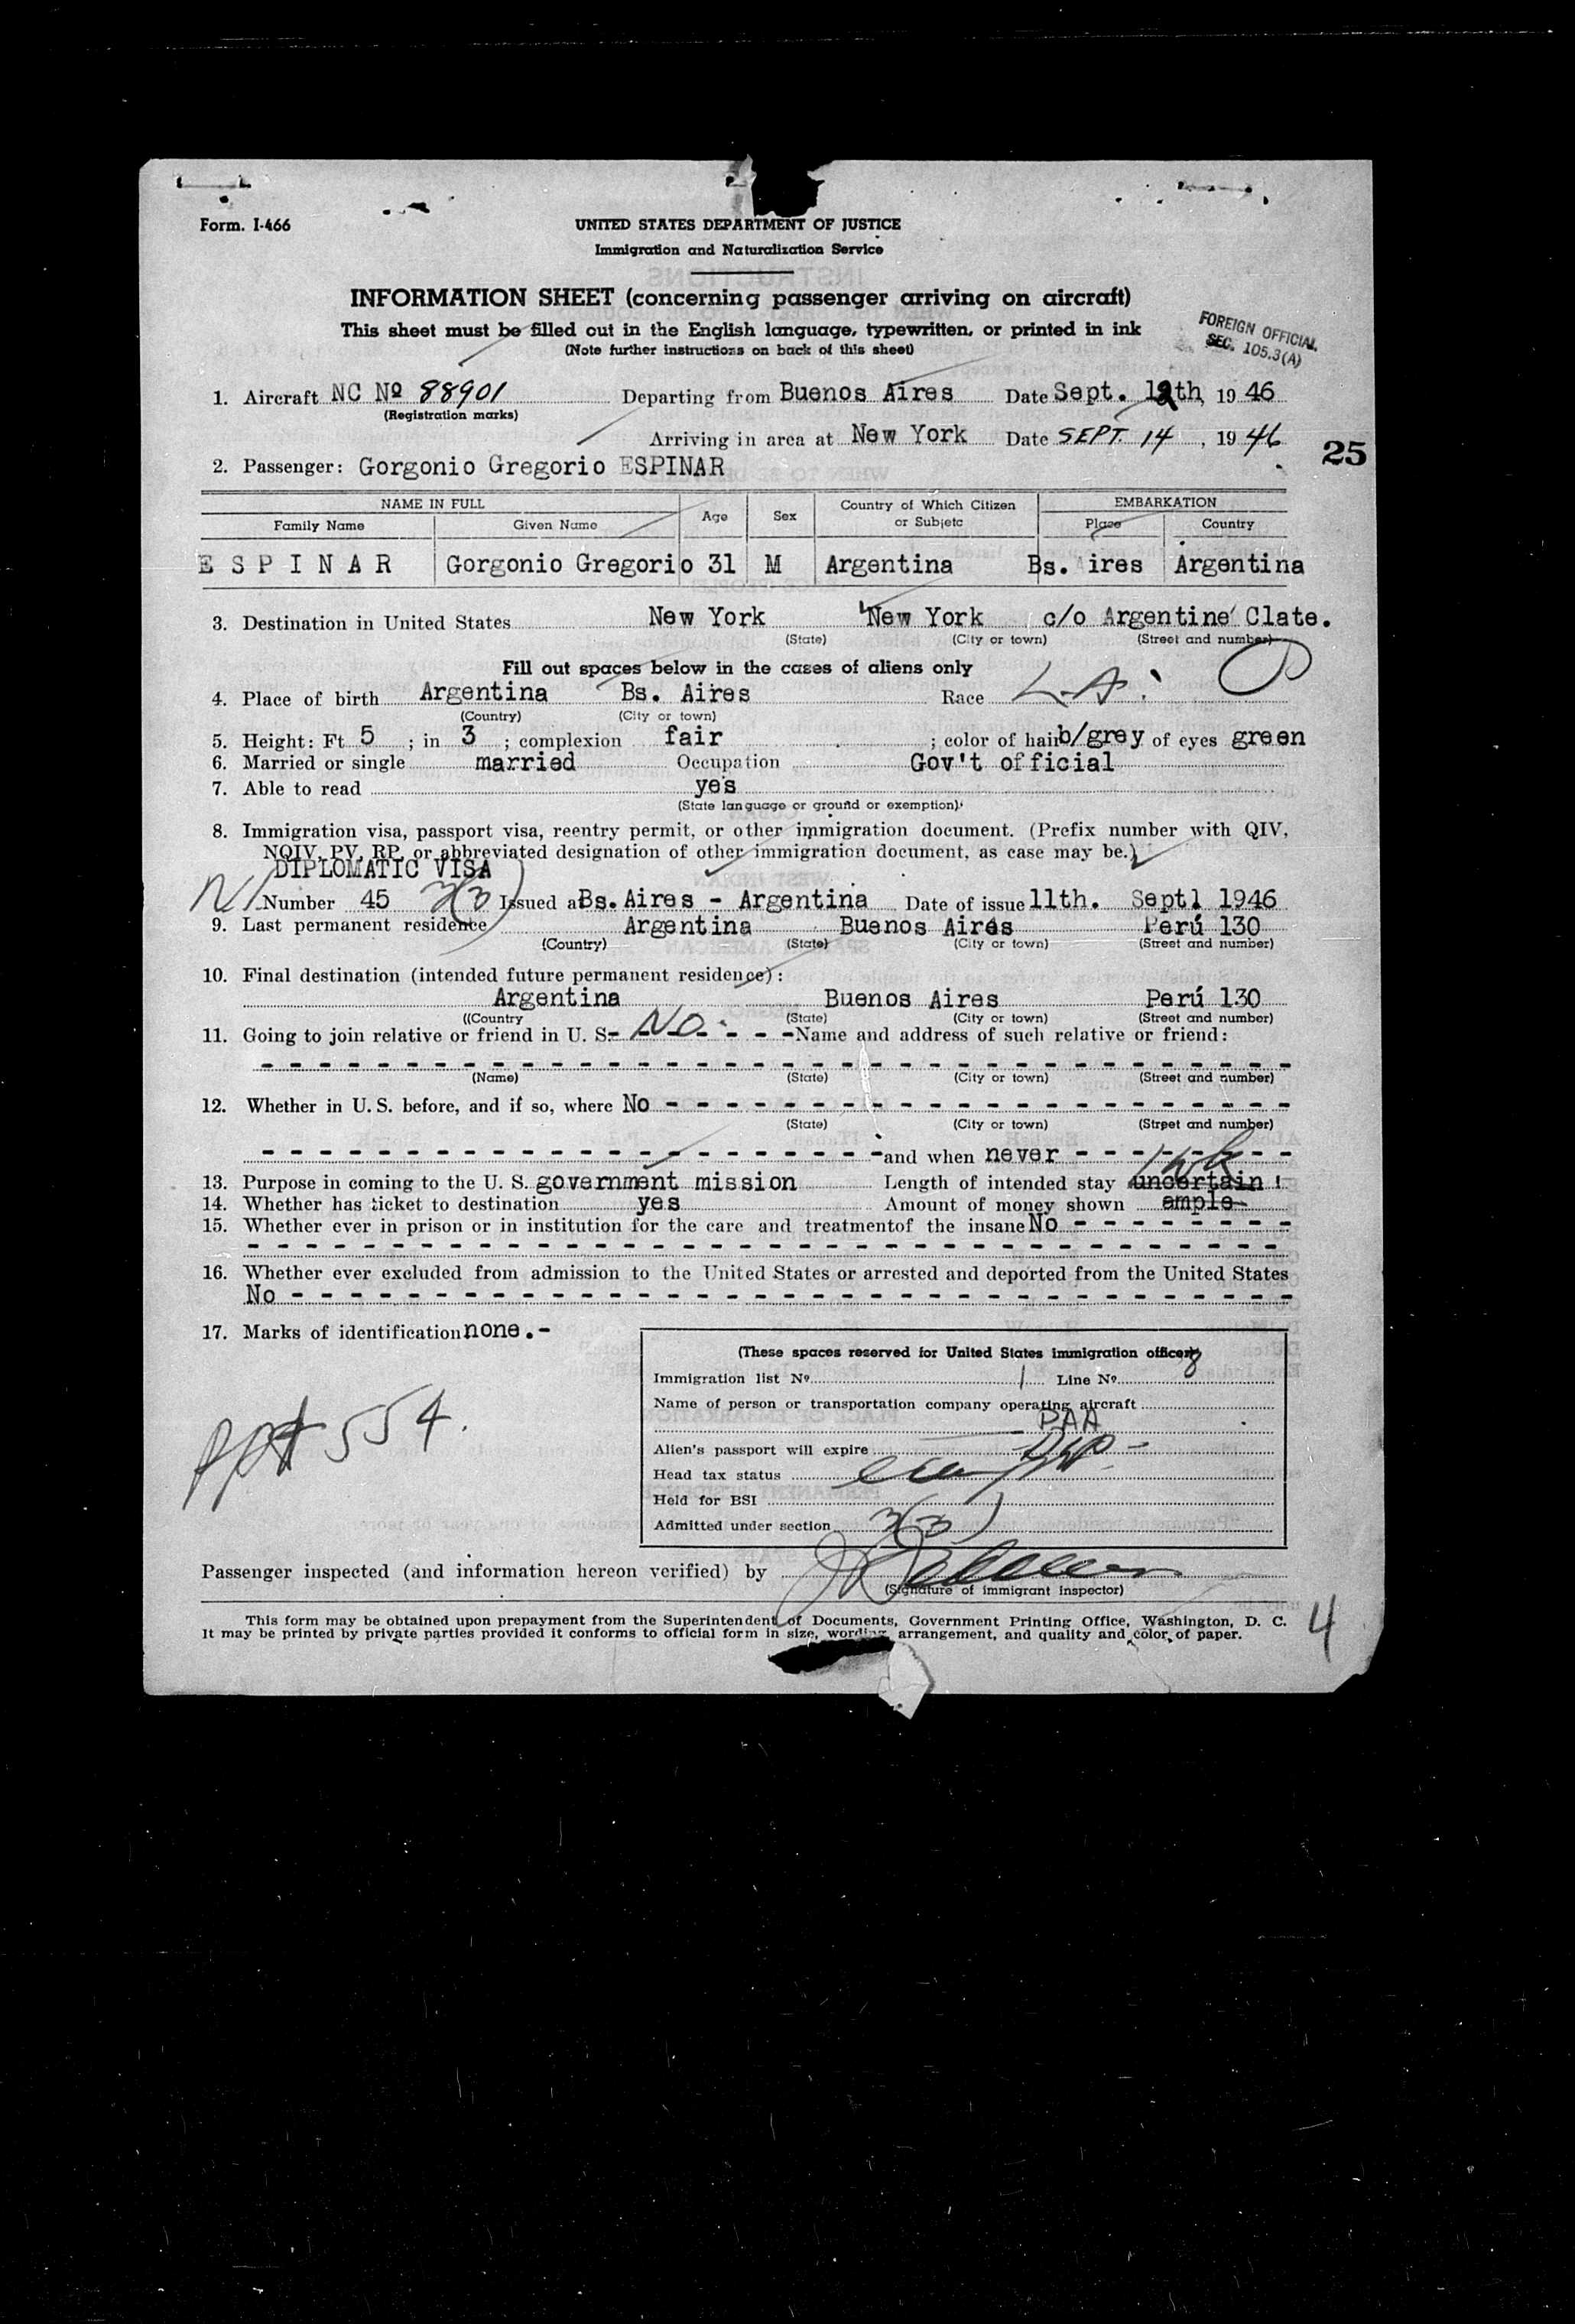 Form. I-466
UNITED STATES DEPARTMENT OF JUSTICE
Immigration and Naturalization Service
INFORMATION SHEET (concerning passenger arriving on aircraft)
This sheet must be filled out in the English language, typewritten, or printed in ink
(Note further instructions on back of this sheet)
FOREIGN OFFICIAL
SEC. 105.3(A)
1. Aircraft NC Nº 88901 Departing from Buenos Aires Date Sept. 12th, 19 46
(Registration marks)
Arriving in area at New York Date SEPT. 14, 19 46
25
2. Passenger: Gorgonio Gregorio ESPINAR
NAME IN FULL Age Sex Country of Which Citizen or Subjetc EMBARKATION
Family Name Given Name Place Country
E S P I N A R Gorgonio Gregorio 31 M Argentina Bs. Aires Argentina
3. Destination in United States New York New York c/o Argentine Clate.
(State) (City or town) (Street and number)
Fill out spaces below in the cases of aliens only
4. Place of birth Argentina Bs. Aires Race L.A.
(Country) (City or town)
5. Height: Ft 5 ; in 3 ; complexion fair ; color of hair b/grey of eyes green
6. Married or single married Occupation Gov't official
7. Able to read yes
(State language or ground or exemption).
8. Immigration visa, passport visa, reentry permit, or other immigration document. (Prefix number with QIV,
NQIV, PV, RP, or abbreviated designation of other immigration document, as case may be.)
DIPLOMATIC VISA
Number 45 3(3) Issued at Bs. Aires - Argentina Date of issue 11th. Septl 1946
9. Last permanent residence Argentina Buenos Aires Perú 130
(Country) (State) (City or town) (Street and number)
10. Final destination (intended future permanent residence):
Argentina Buenos Aires Perú 130
((Country (State) (City or town) (Street and number)
11. Going to join relative or friend in U. S. - No. - - - - Name and address of such relative or friend:
(Name) (State) (City or town) (Street and number)
12. Whether in U. S. before, and if so, where No - - - - - - - - - - - - - - - - - - - - - -
(State) (City or town) (Street and number)
- - - - - - - - - - - - - - - - - - - - - - and when never - - - - - - - -
1 wk
13. Purpose in coming to the U. S. government mission Length of intended stay uncertain !
14. Whether has ticket to destination yes Amount of money shown ample
15. Whether ever in prison or in institution for the care and treatmentof the insane No - - - - - - - -
16. Whether ever excluded from admission to the United States or arrested and deported from the United States
No - - - - - - - - - - - - - - - - - - - - - - - - - - - - - - - - - - -
17. Marks of identification none.-
(These spaces reserved for United States immigration officers)
Immigration list Nº 1 Line Nº 8
Name of person or transportation company operating aircraft
PAA
Alien's passport will expire
Head tax status
Held for BSI
Admitted under section 3(3)
ppt 554.
Passenger inspected (and information hereon verified) by
(Signature of immigrant inspector)
This form may be obtained upon prepayment from the Superintendent of Documents, Government Printing Office, Washington, D. C.
It may be printed by private parties provided it conforms to official form in size, wording, arrangement, and quality and color of paper.
4